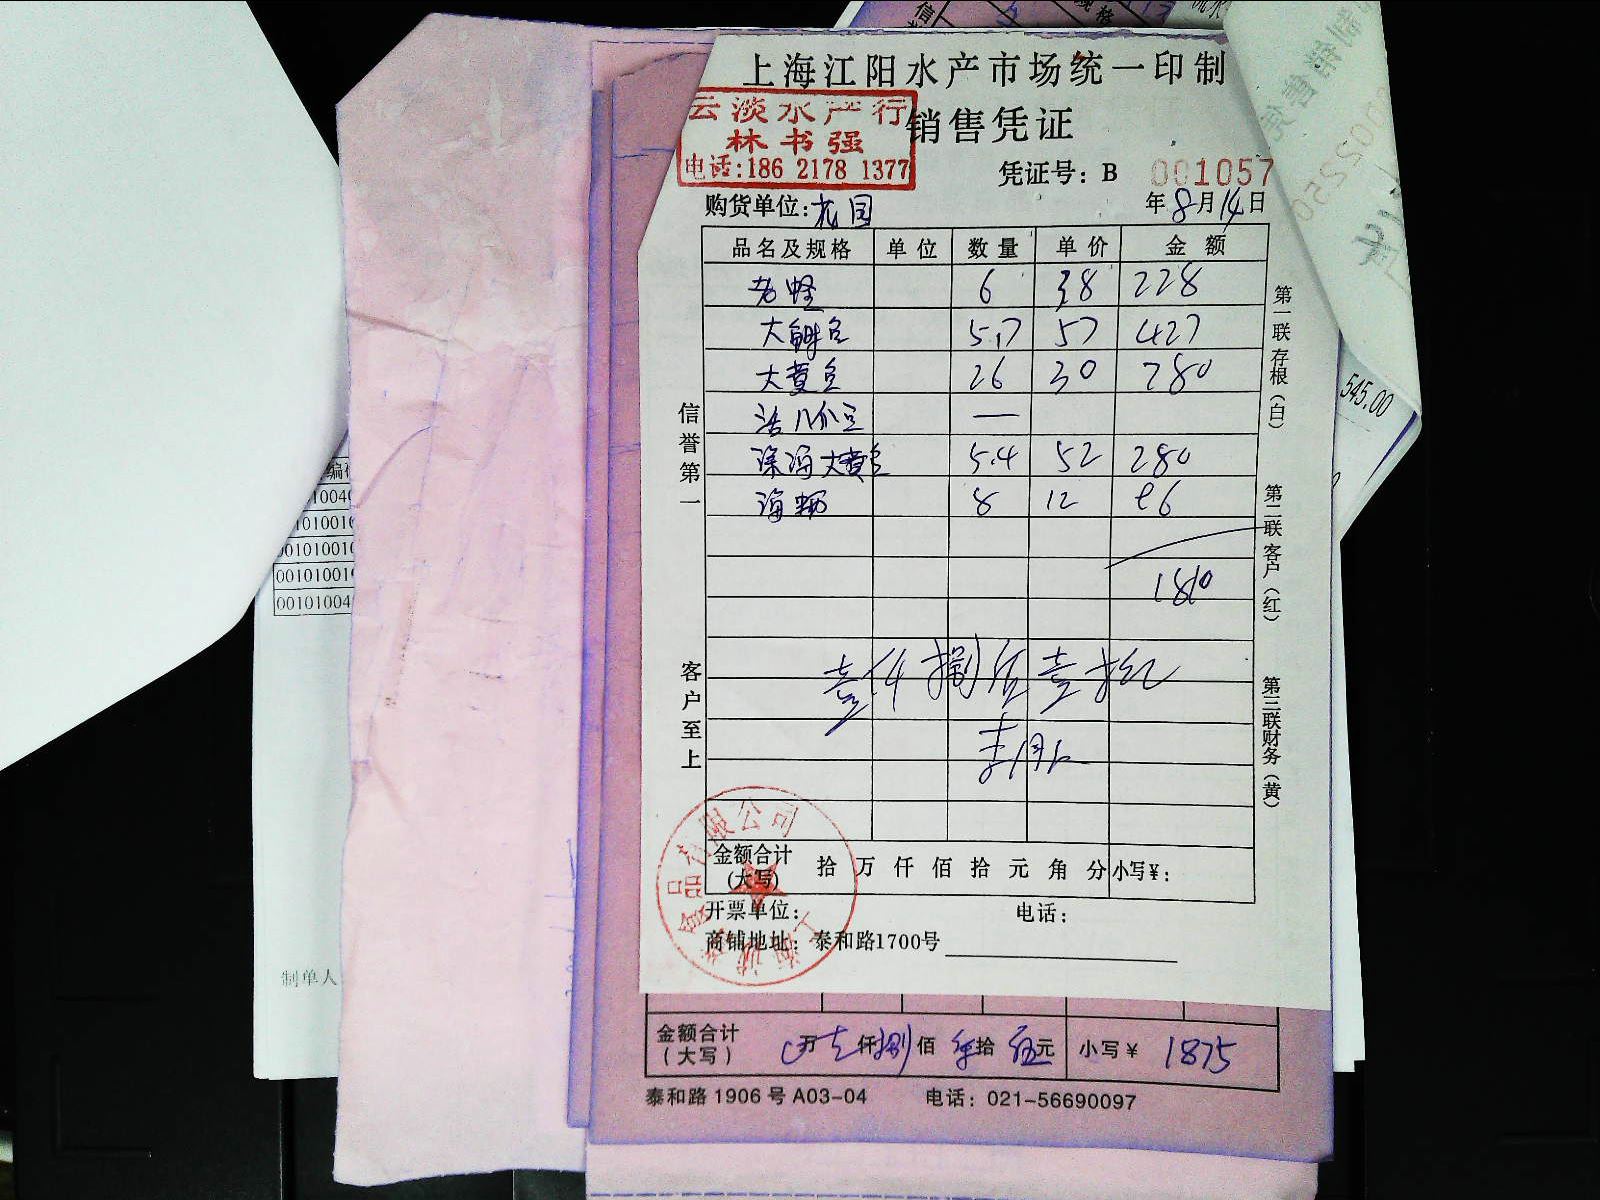 上海江阳水产市场统一印制
云淡水产行
林书强
电话:186 2178 1377
销售凭证
凭证号: B 001057
购货单位: 花园
年 8 月 14 日
品名及规格 单位 数量 单价 金额
老蛏 6 38 228
5.17 57 427
大黄鱼 26 30 780
—
深海大黄鱼 5.4 52 280
8 12 96
1810
壹仟捌佰壹拾
信誉第一
客户至上
第一联存根(白)
第二联客户(红)
第三联财务(黄)
金额合计
(大写) 拾 万 仟 佰 拾 元 角 分 小写¥:
开票单位: 电话:
商铺地址: 泰和路1700号
食品有限公司
上海
金额合计
(大写) 万 仟 捌 佰 拾 伍 元 小写¥ 1875
泰和路 1906 号 A03-04 电话: 021-56690097
545.00
制单人